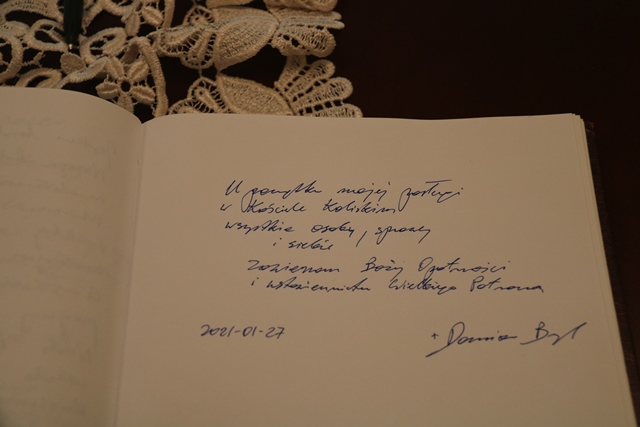 U początku mojej posługi
w Kościele Kaliskim
wszystkie osoby, sprawy
i siebie
zawierzam Bożej Opatrzności
i wstawiennictwu Wielkiego Patrona
2021-01-27
+ Damian Bryl